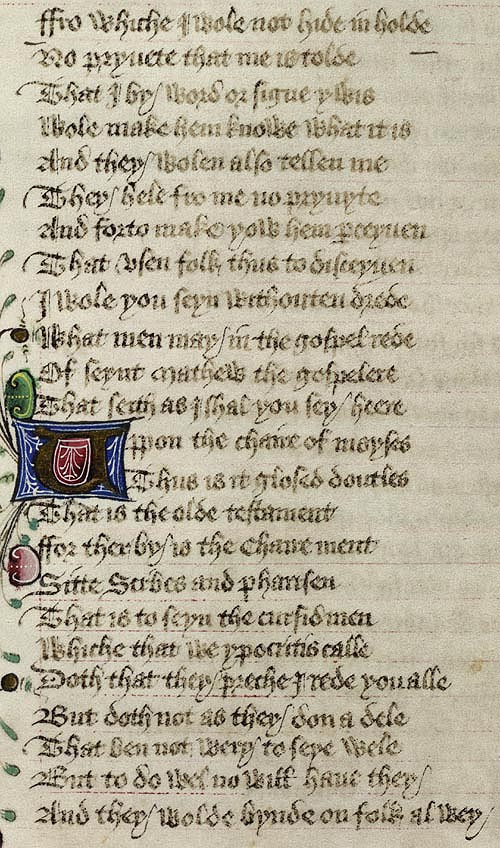 ffro whiche I wole not hide in holde
No pryuete that me is tolde
That I by word or signe ywis
Wole make hem knowe what it is
And they wolen also tellen me
They hele fro me no pryuyte
And forto make yow hem perceyuen
That vsen folk thus to disceyuen
I wole you seyn withouten drede
What men may in the gospel rede
Of seynt mathew the gospelere
That seith as I shal you sey heere
Vppon the chaire of moyses
Thus is it glosed doutles
That is the olde testament
ffor ther by is the chaire ment
Sitte Scribes and pharisen
That is to seyn the cursid men
Whiche that we ypocritis calle
Doth that they preche I rede you alle
But doth not as they don a dele
That ben not wery to seye wele
But to do wel no will haue they
And they wolde bynde on folk alwey